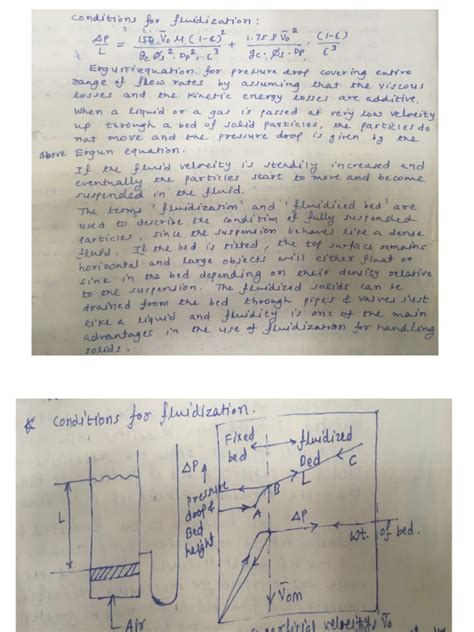 Conditions for fluidization :
ΔP/L = 150 V̄o μ (1-ε)² / gc Øs² . Dp² . ε³ + 1.75 ρ V̄o² / gc . Øs . Dp . (1-ε) / ε³
Ergun equation for pressure drop covering entire
range of flow rates by assuming that the viscous
losses and the kinetic energy losses are additive.
When a liquid or a gas is passed at very low velocity
up through a bed of solid particles, the particles do
not move and the pressure drop is given by the
above Ergun equation.
If the fluid velocity is steadily increased and
eventually the particles start to move and become
suspended in the fluid.
The terms 'fluidization' and 'fluidized bed' are
used to describe the condition of fully suspended
particles, since the suspension behaves like a dense
fluid. If the bed is tilted, the top surface remains
horizontal and large objects will either float or
sink in the bed depending on their density relative
to the suspension. The fluidized solids can be
drained from the bed through pipes & valves just
like a liquid and fluidity is one of the main
advantages in the use of fluidization for handling
solids.
Conditions for fluidization.
Fixed bed
fluidized bed
ΔP
pressure
drop &
Bed
height
L
A
B
L
C
ΔP
wt. of bed.
V̄om
Air
velocity, V̄o